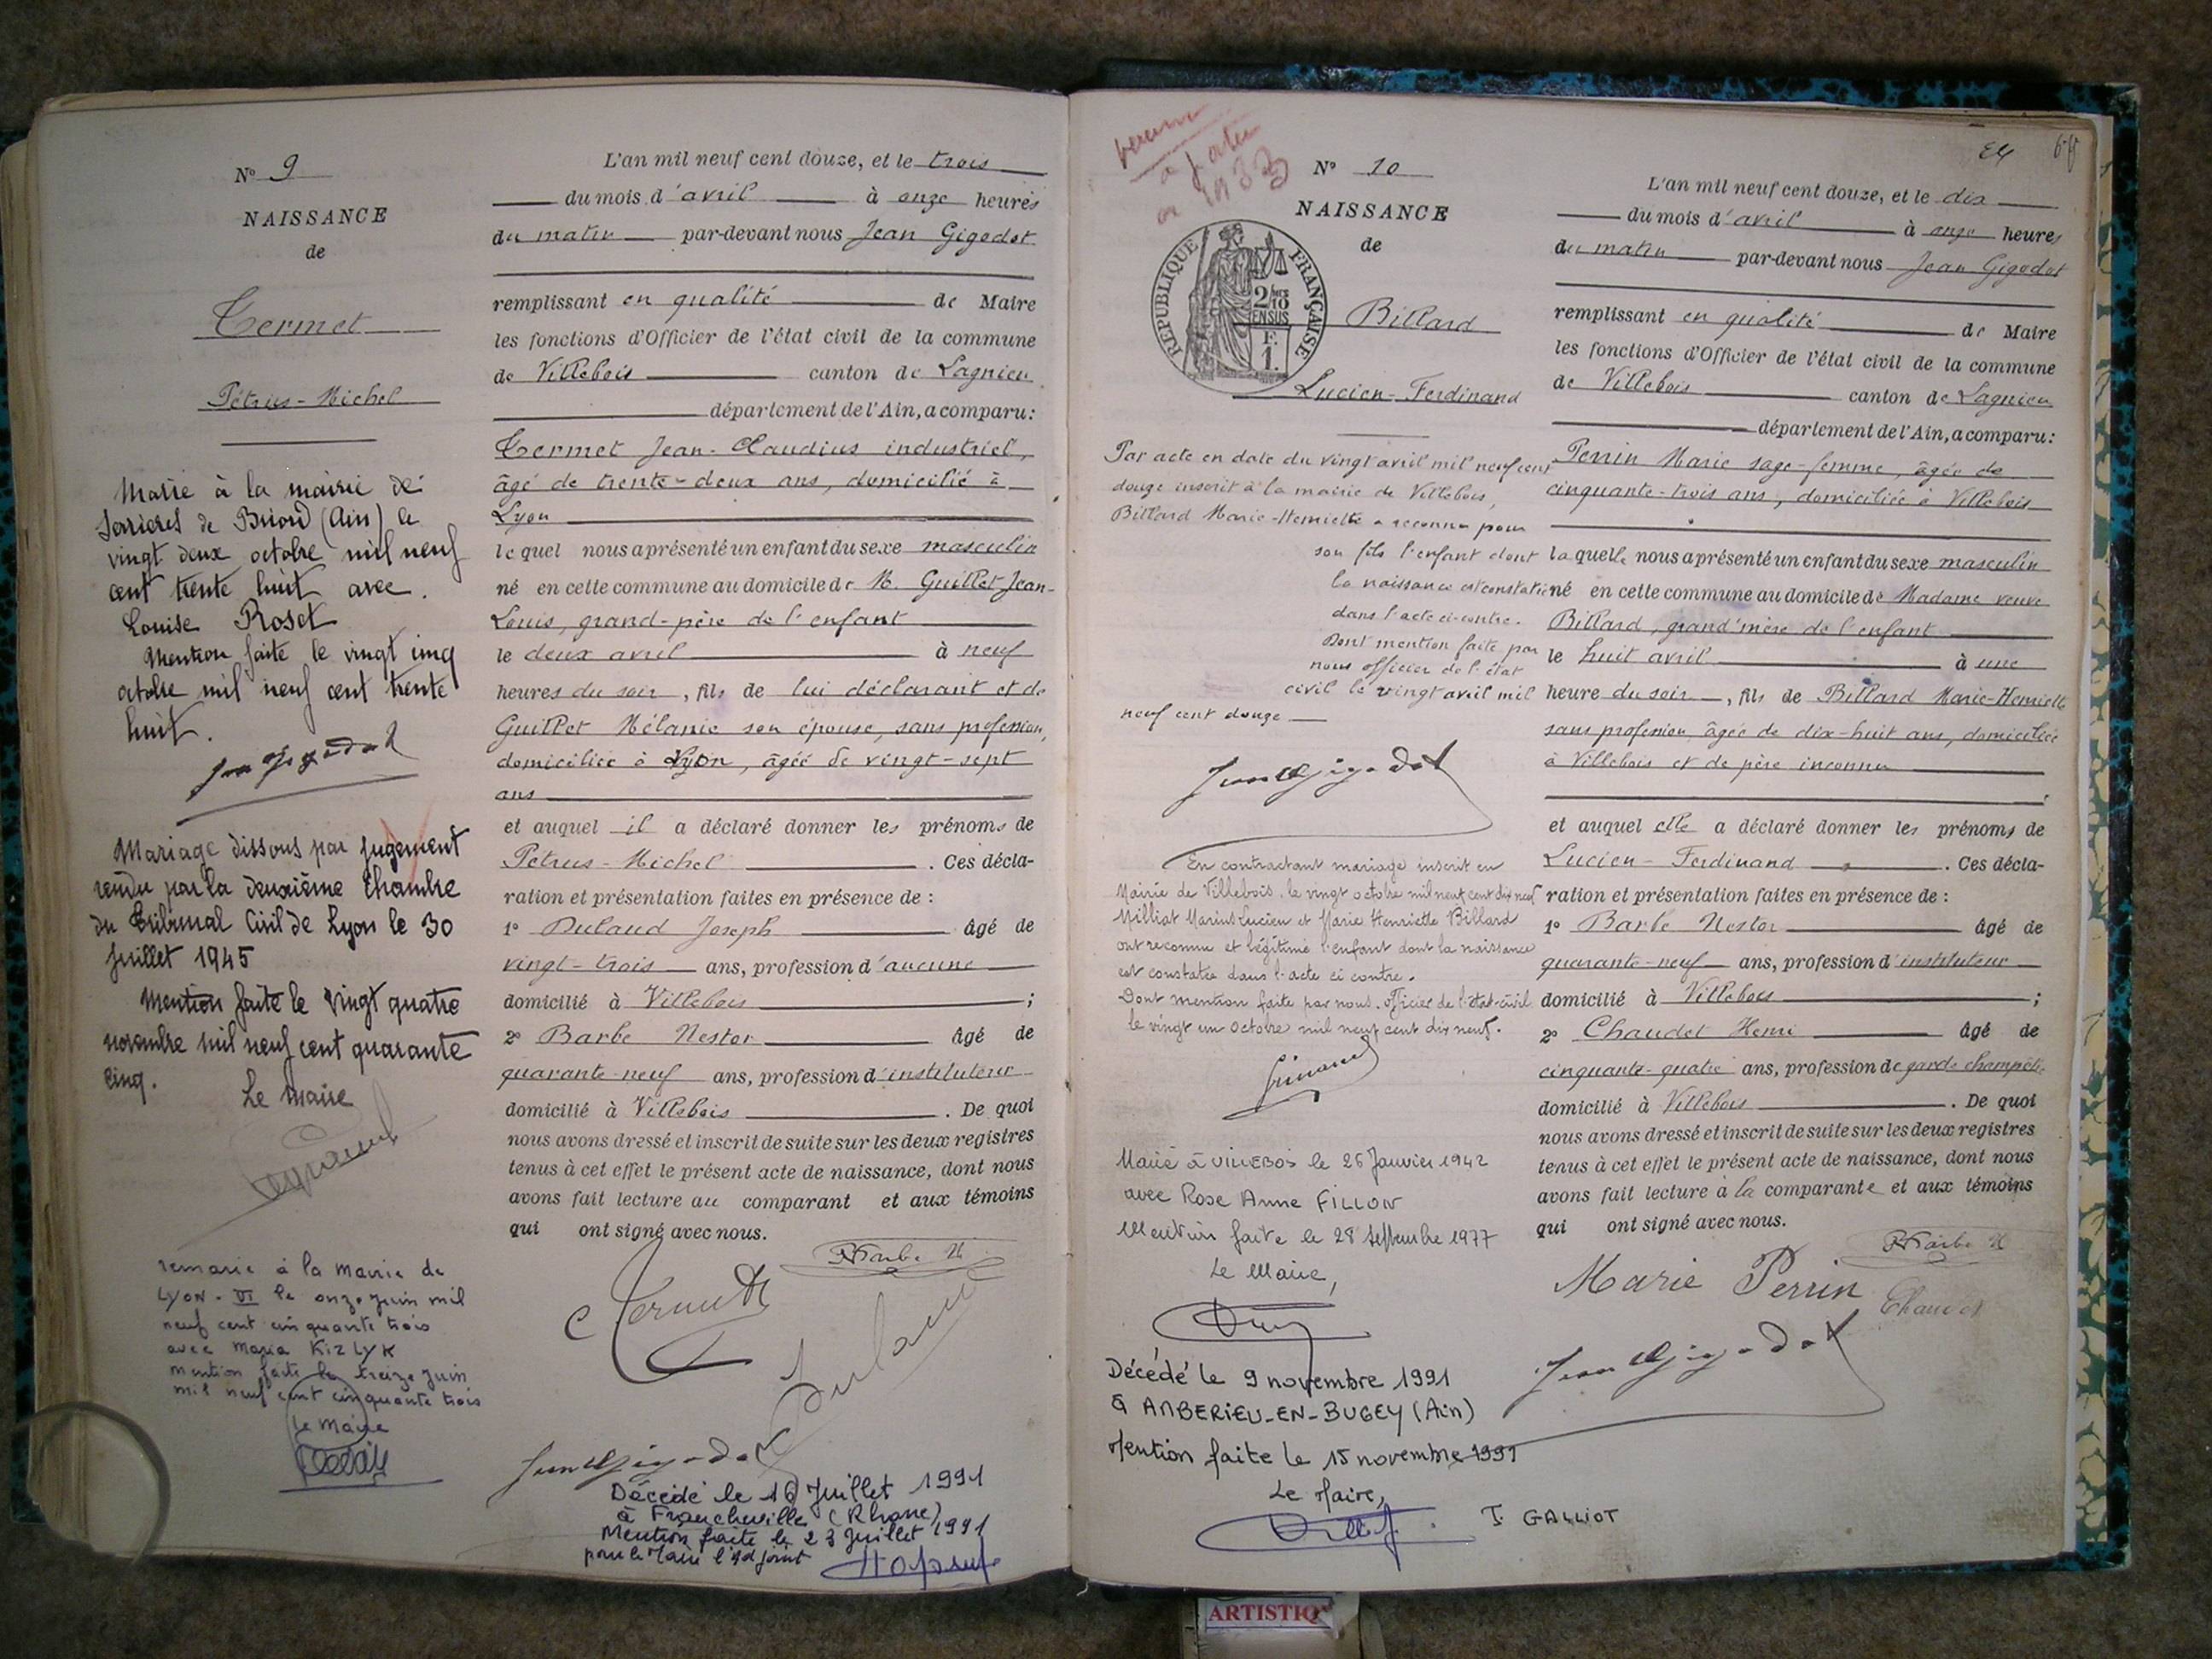 N° 9
NAISSANCE
de
Termet
Pétrus-Michel
Marié à la mairie de
Serrières de Briord (Ain) le
vingt deux octobre mil neuf
cent trente huit avec
Louise Roset
Mention faite le vingt cinq
octobre mil neuf cent trente
huit.
Mariage dissous par jugement
rendu par la deuxième Chambre
du Tribunal Civil de Lyon le 30
juillet 1945
Mention faite le vingt quatre
novembre mil neuf cent quarante
cinq.
Le Maire
remarié à la mairie de
LYON - VI le onze juin mil
neuf cent cinquante trois
avec Maria KIZLYK
mention faite le treize juin
mil neuf cent cinquante trois
Le Maire
L'an mil neuf cent douze, et le trois
du mois d'avril à onze heures
du matin par-devant nous Jean Gigodot
remplissant en qualité de Maire
les fonctions d'Officier de l'état civil de la commune
de Villebois canton de Lagnieu
département de l'Ain, a comparu:
Termet Jean-Claudius industriel,
âgé de trente-deux ans, domicilié à
Lyon
lequel nous a présenté un enfant du sexe masculin
né en cette commune au domicile de M. Guillet Jean-
Louis, grand-père de l'enfant
le deux avril à neuf
heures du soir, fils de lui déclarant et de
Guillet Mélanie son épouse, sans profession,
domiciliée à Lyon, âgée de vingt-sept
ans
et auquel il a déclaré donner les prénoms de
Pétrus-Michel. Ces décla-
ration et présentation faites en présence de :
1° Dulaud Joseph âgé de
vingt-trois ans, profession d'aucune
domicilié à Villebois ;
2° Barbe Nestor âgé de
quarante-neuf ans, profession d'instituteur
domicilié à Villebois. De quoi
nous avons dressé et inscrit de suite sur les deux registres
tenus à cet effet le présent acte de naissance, dont nous
avons fait lecture au comparant et aux témoins
qui ont signé avec nous.
Barbe N
C Termet
Dulaud
Jean Gigodot
Décédé le 16 Juillet 1991
à Francheville (Rhone)
Mention faite le 23 Juillet 1991
pour le Maire l'adjoint
24
N° 10
NAISSANCE
de
REPUBLIQUE FRANÇAISE
2/10
EN SUS
F.
1.
Billard
Lucien-Ferdinand
Par acte en date du vingt avril mil neuf cent
douze inscrit à la mairie de Villebois,
Billard Marie-Henriette a reconnu pour
son fils l'enfant dont
la naissance est constatée
dans l'acte ci-contre.
Dont mention faite par
nous officier de l'état
civil le vingt avril mil
neuf cent douze
Jean Gigodot
En contractant mariage inscrit en
Mairie de Villebois, le vingt octobre mil neuf cent dix neuf
Milliat Marius Lucien et Marie Henriette Billard
ont reconnu et légitimé l'enfant dont la naissance
est constatée dans l'acte ci contre.
Dont mention faite par nous, officier de l'état-civil
le vingt un octobre mil neuf cent dix neuf.
Marié à VILLEBOIS le 26 Janvier 1942
avec Rose Anne FILLON
Mention faite le 28 Septembre 1977
Le Maire,
Décédé le 9 novembre 1991
à AMBERIEU-EN-BUGEY (Ain)
Mention faite le 15 novembre 1991
Le Maire,
J. GALLIOT
L'an mil neuf cent douze, et le dix
du mois d'avril à onze heures
du matin par-devant nous Jean Gigodot
remplissant en qualité de Maire
les fonctions d'Officier de l'état civil de la commune
de Villebois canton de Lagnieu
département de l'Ain, a comparu:
Perrin Marie sage-femme, âgée de
cinquante-trois ans, domiciliée à Villebois
laquelle nous a présenté un enfant du sexe masculin
né en cette commune au domicile de Madame veuve
Billard, grand'mère de l'enfant
le huit avril à une
heure du soir, fils de Billard Marie-Henriette
sans profession, âgée de dix-huit ans, domiciliée
à Villebois et de père inconnu
et auquel elle a déclaré donner les prénoms de
Lucien-Ferdinand. Ces décla-
ration et présentation faites en présence de :
1° Barbe Nestor âgé de
quarante-neuf ans, profession d'instituteur
domicilié à Villebois ;
2° Chaudet Henri âgé de
cinquante-quatre ans, profession de garde champêt.
domicilié à Villebois. De quoi
nous avons dressé et inscrit de suite sur les deux registres
tenus à cet effet le présent acte de naissance, dont nous
avons fait lecture à la comparante et aux témoins
qui ont signé avec nous.
Barbe N
Marie Perrin
Chaudet
Jean Gigodot
ARTISTIQ